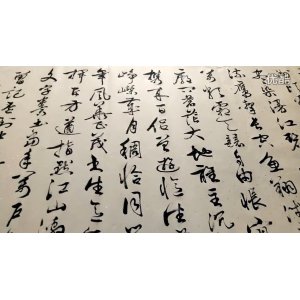 染漫江碧
流鹰击长空鱼翔浅
万类霜天竞自由怅寥
廓问苍茫大地谁主沉
携来百侣曾游忆往
峥嵘岁月稠恰同学
年风华正茂书生意
挥斥方遒指点江山激
文字粪土当年万户
曾记否到中流
优酷